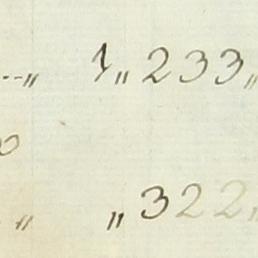 ..„ 1„233„
0
„ „322„